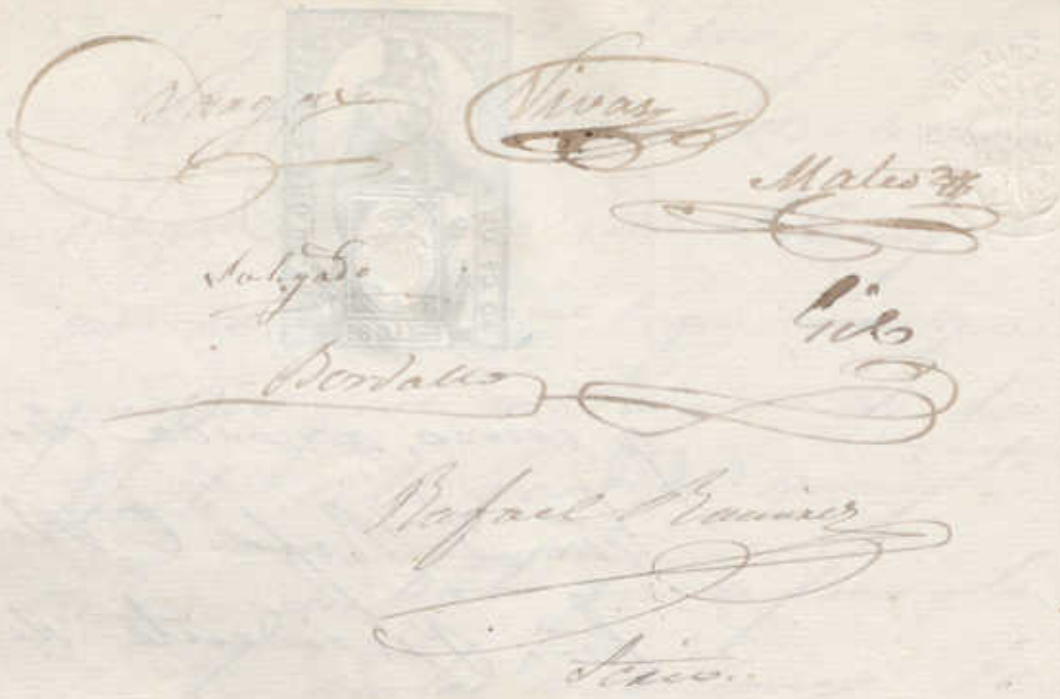 Vargas Vivas
Mateo
Salgado
Gil
Bordallo
Rafael Ramirez
Srio.